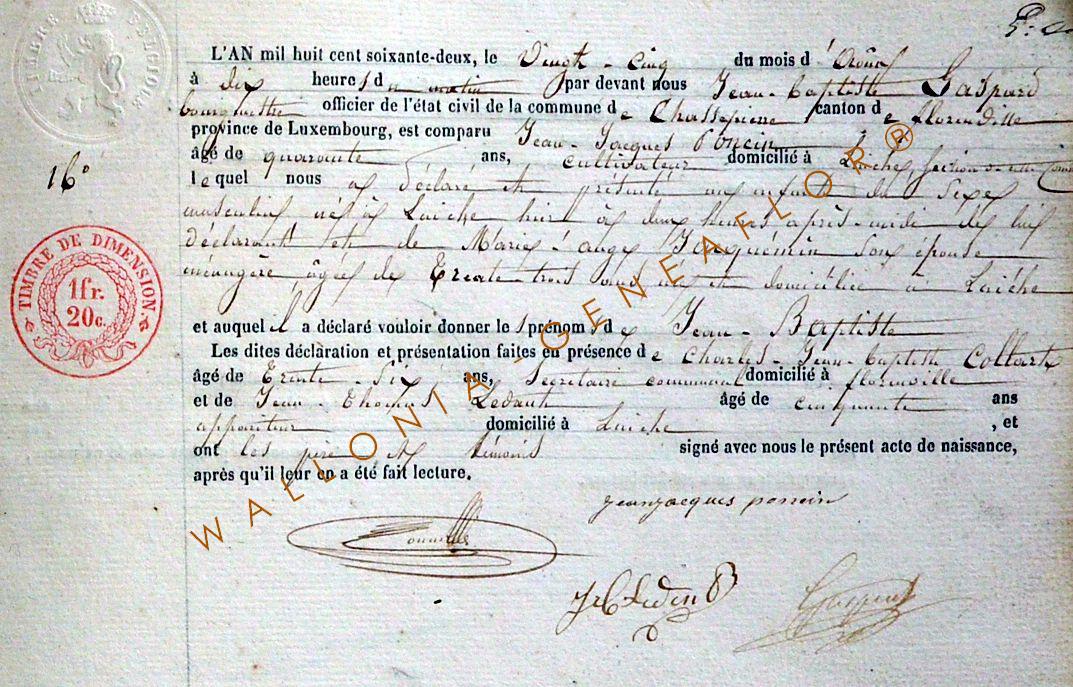 TIMBRE BELGIQUE
L'AN mil huit cent soixante-deux, le Vingt-cinq du mois d'Août
à dix heures du matin par devant nous Jean-Baptiste Gaspard
bourgmestre officier de l'état civil de la commune de Chassepierre canton de florenville
province de Luxembourg, est comparu Jean-Jacques Poncin
16°
âgé de quarante ans, cultivateur domicilié à Laiche, section de cette Comm
lequel nous a déclaré et présenté un enfant du Sexe
masculin né à Laiche hier à deux heures après-midi de lui
déclarant et de Marie-Ange Jacquemin son épouse
ménagère âgée de Trente trois ans née et domiciliée à Laiche
TIMBRE DE DIMENSION.
1 fr.
20 c.
et auquel il a déclaré vouloir donner les prénoms de Jean-Baptiste
Les dites déclaration et présentation faites en présence de Charles-Jean-baptiste Collart
âgé de Trente-Six ans, Secrétaire communal domicilié à florenville
et de Jean-Thomas Ledant âgé de cinquante ans
appariteur domicilié à Laiche, et
ont les père et témoins signé avec nous le présent acte de naissance,
après qu'il leur en a été fait lecture.
jeanjacques poncin
WALLONIA GENEAFLOR®